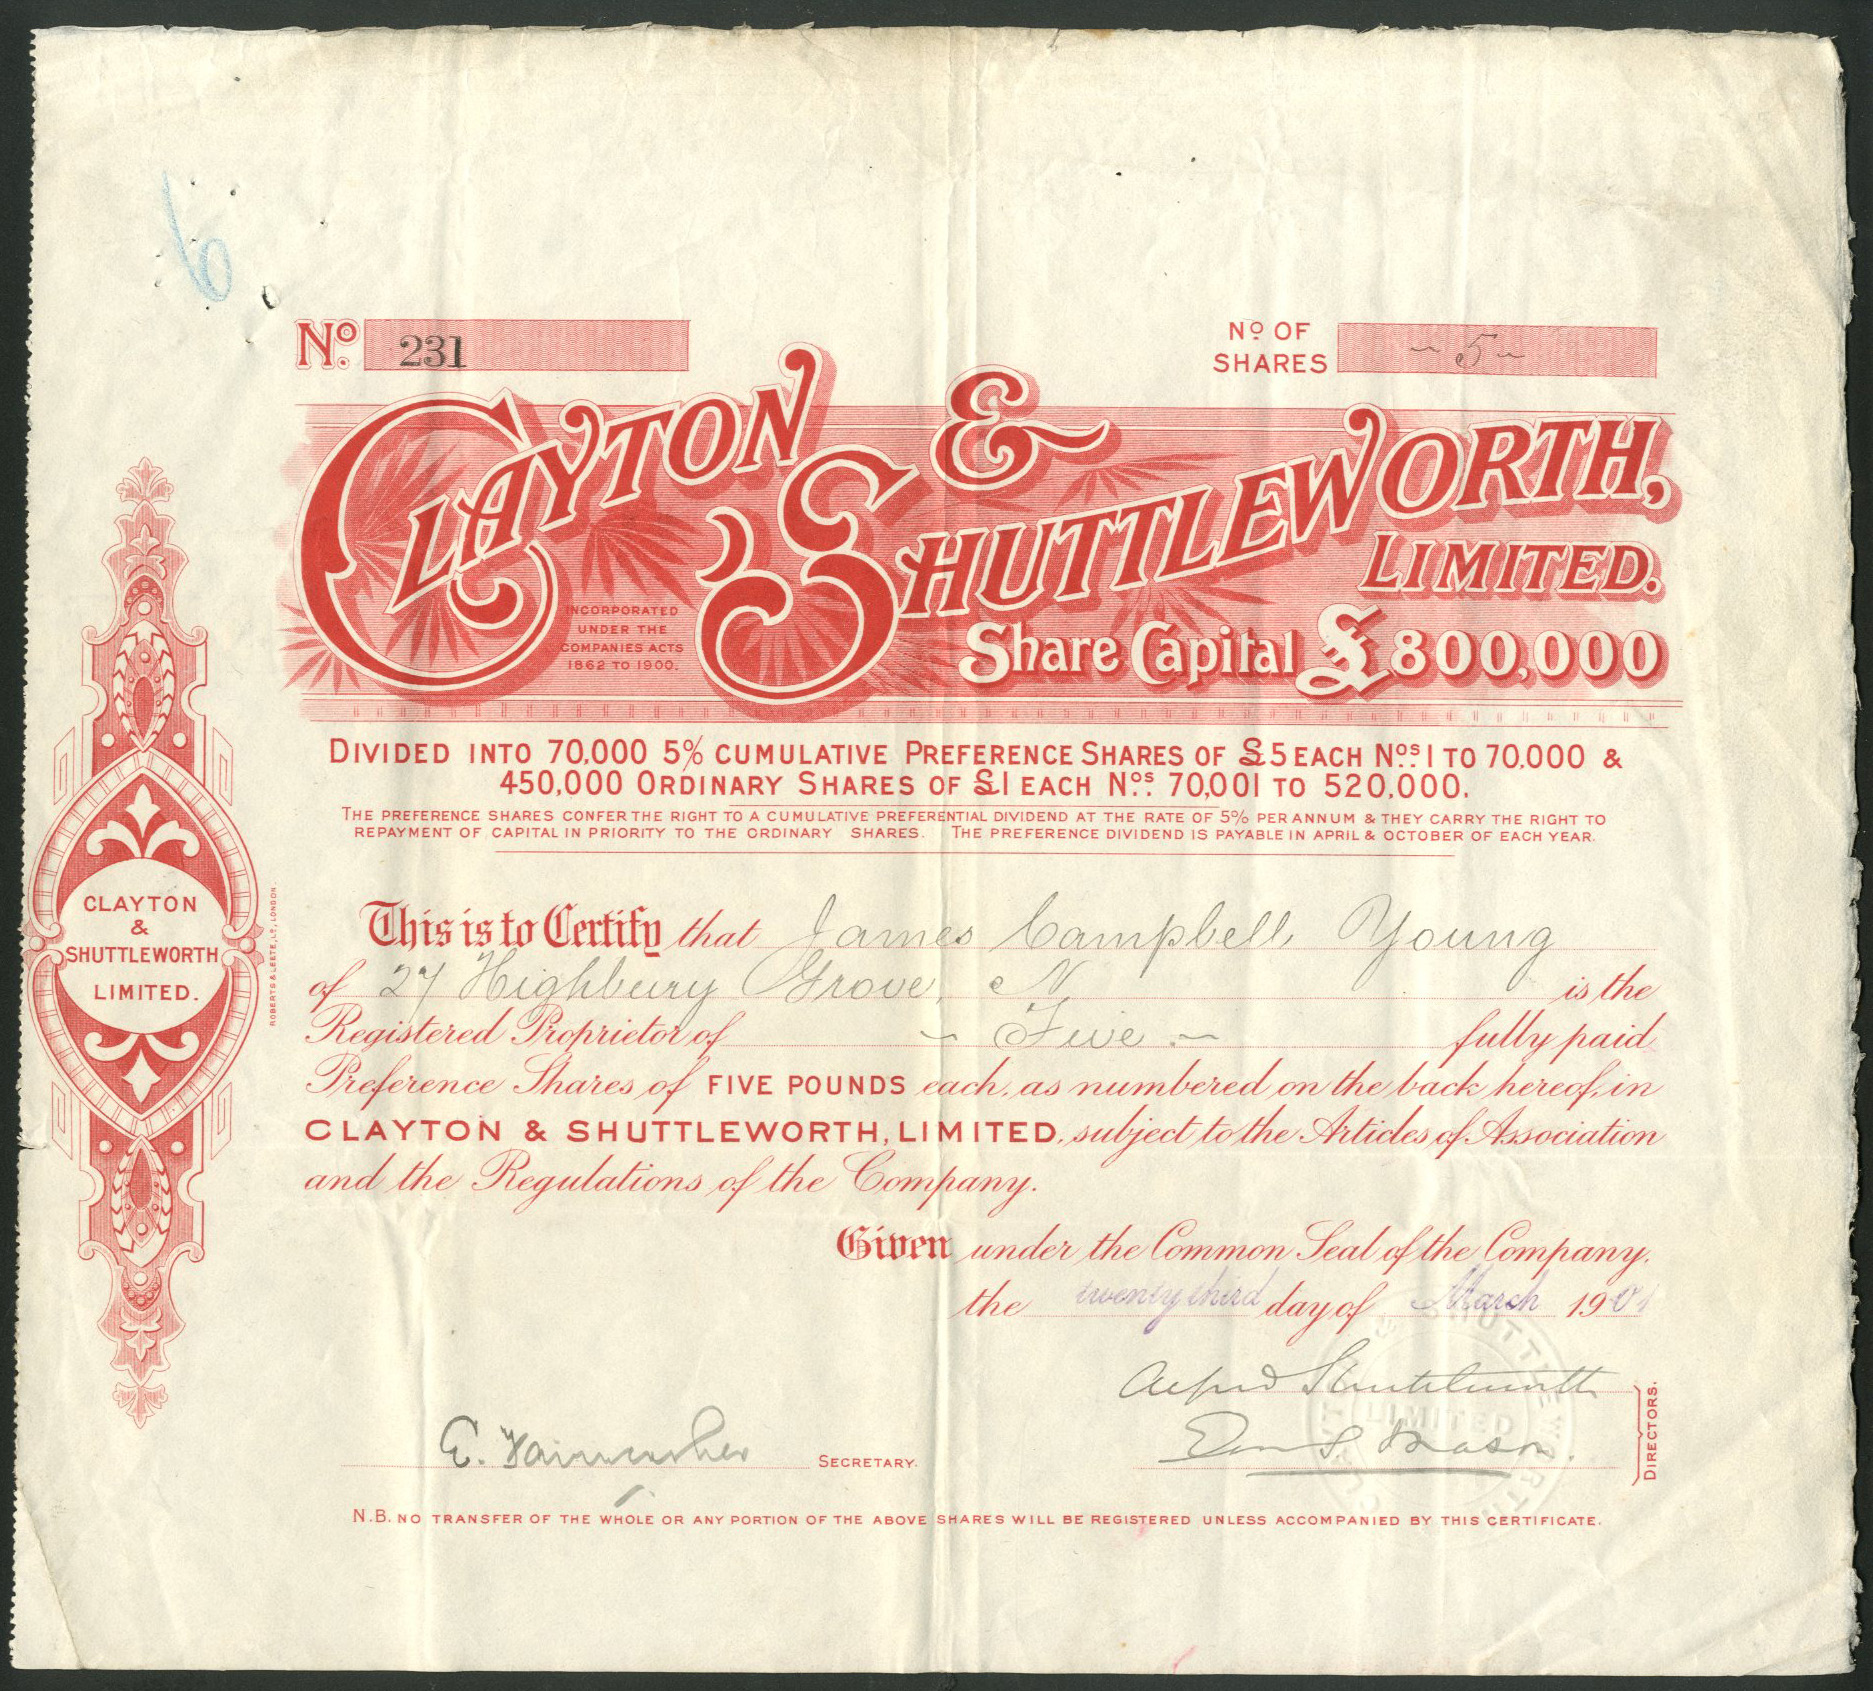 6
No. 231
No OF SHARES ~ 5 ~
CLAYTON & SHUTTLEWORTH,
LIMITED.
INCORPORATED
UNDER THE
COMPANIES ACTS
1862 TO 1900.
Share Capital £800,000
DIVIDED INTO 70,000 5% CUMULATIVE PREFERENCE SHARES OF £5 EACH Nos. 1 TO 70,000 &
450,000 ORDINARY SHARES OF £1 EACH Nos. 70,001 TO 520,000.
THE PREFERENCE SHARES CONFER THE RIGHT TO A CUMULATIVE PREFERENTIAL DIVIDEND AT THE RATE OF 5% PER ANNUM & THEY CARRY THE RIGHT TO
REPAYMENT OF CAPITAL IN PRIORITY TO THE ORDINARY SHARES. THE PREFERENCE DIVIDEND IS PAYABLE IN APRIL & OCTOBER OF EACH YEAR.
CLAYTON
&
SHUTTLEWORTH
LIMITED.
ROBERTS & LEETE, LD, LONDON.
This is to Certify that James Campbell Young
of 27 Highbury Grove, N is the
Registered Proprietor of ~ Five ~ fully paid
Preference Shares of FIVE POUNDS each, as numbered on the back hereof, in
CLAYTON & SHUTTLEWORTH, LIMITED, subject to the Articles of Association
and the Regulations of the Company.
Given under the Common Seal of the Company,
the twenty third day of March 190
CLAYTON & SHUTTLEWORTH
LIMITED
Alfred Shuttleworth
E. SECRETARY.
Mason. DIRECTORS.
N.B. NO TRANSFER OF THE WHOLE OR ANY PORTION OF THE ABOVE SHARES WILL BE REGISTERED UNLESS ACCOMPANIED BY THIS CERTIFICATE.